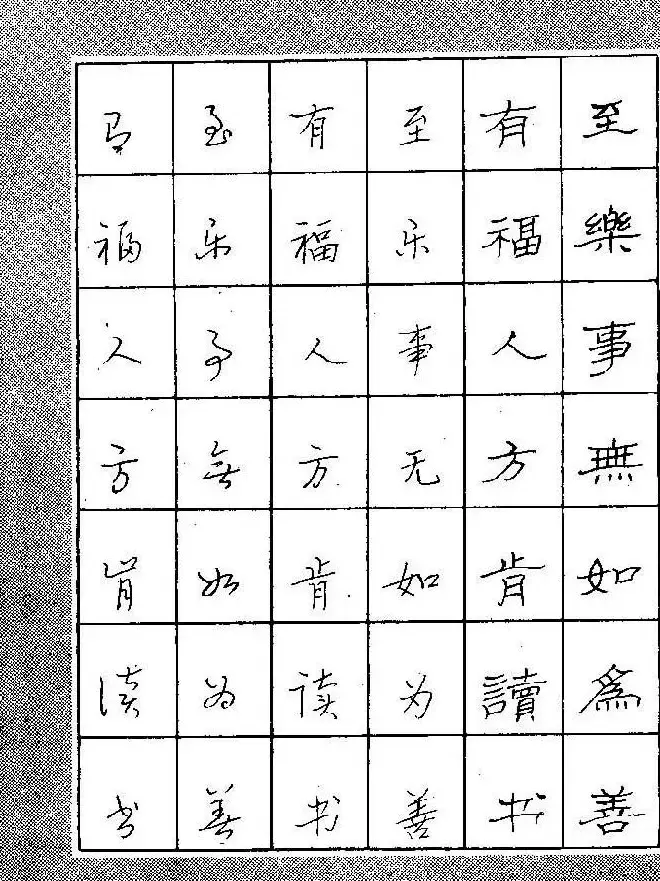 至樂事無如爲善
有福人方肯讀书
至乐事无如为善
有福人方肯读书
至乐事無如为善
有福人方肯读书